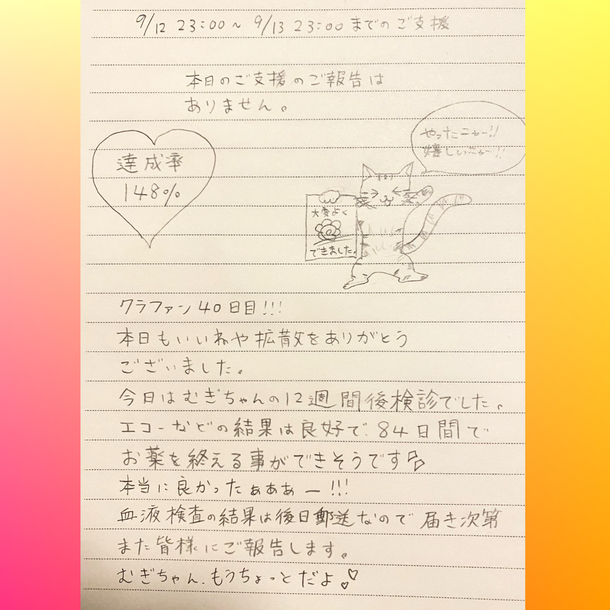 9/12 23:00～9/13 23:00までのご支援
本日のご支援のご報告は
ありません。
達成率
148%
やったニャー!!
嬉しいニャー!!
大変よく
できました。
クラファン40日目!!!
本日もいいねや拡散をありがとう
ございました。
今日はむぎちゃんの12週間後検診でした。
エコーなどの結果は良好で、84日間で
お薬を終える事ができそうです♪
本当に良かったぁぁぁー!!!
血液検査の結果は後日郵送なので届き次第
また皆様にご報告します。
むぎちゃん、もうちょっとだよ♡